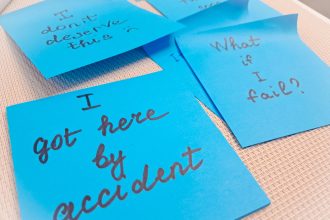 I
don't
deserve
this :(
What
if I
fail?
I
got here
by
accident